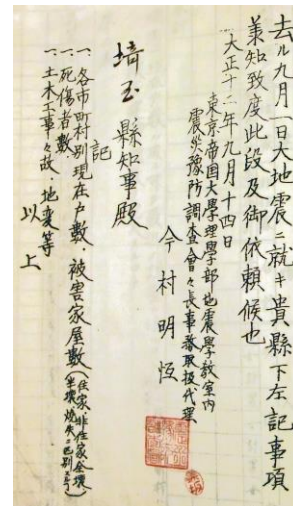 去ル九月一日大地震ニ就キ貴縣下左記事項
兼知致度此段及御依頼候也
大正十二年九月十四日
東京帝国大學理學部地震學教室内
震災豫防調査會々長事務取扱代理
今村明恒
埼玉縣知事殿
記
一、各市町村別現在戸数 被害家屋数(住家非住家全壊
半壊焼失ニ区別スルコト)
一、死傷者数
一、土木工事々故 地変等
以上